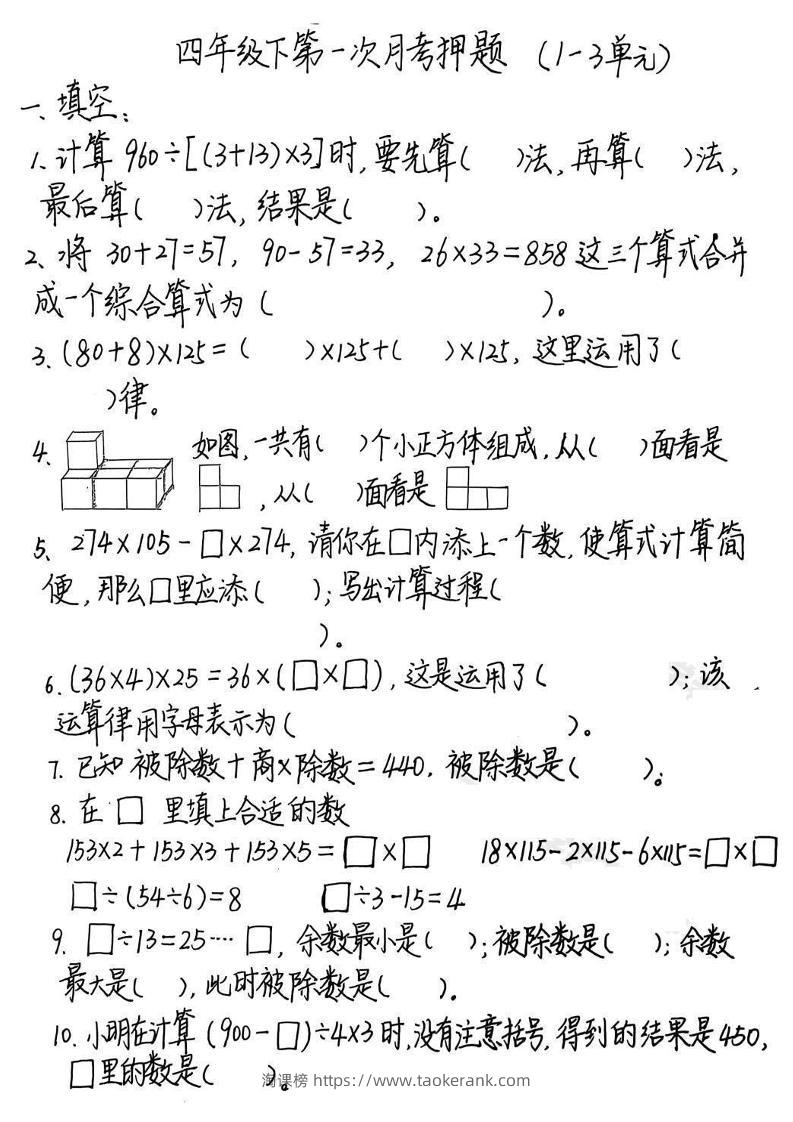 四年级下第一次月考押题 (1-3单元)
一、填空:
1、计算 960÷[(3+13)×3]时,要先算(  )法,再算(  )法,
最后算(  )法,结果是(  )。
2、将 30+27=57, 90-57=33, 26×33=858 这三个算式合并
成一个综合算式为(  )。
3、(80+8)×125=(  )×125+(  )×125,这里运用了(
)律。
4、如图,一共有(  )个小正方体组成,从(  )面看是
,从(  )面看是
5、274×105-□×274,请你在□内添上一个数,使算式计算简
便,那么□里应添(  );写出计算过程(
)。
6、(36×4)×25=36×(□×□),这是运用了(  );该
运算律用字母表示为(  )。
7. 已知被除数+商×除数=440,被除数是(  )。
8. 在 □ 里填上合适的数
153×2+153×3+153×5=□×□  18×115-2×115-6×115=□×□
□÷(54÷6)=8  □÷3-15=4
9. □÷13=25…… □,余数最小是(  );被除数是(  );余数
最大是(  ),此时被除数是(  )。
10. 小明在计算 (900-□)÷4×3时,没有注意括号,得到的结果是450,
□里的数是(  )。
淘课榜 https://www.taokerank.com